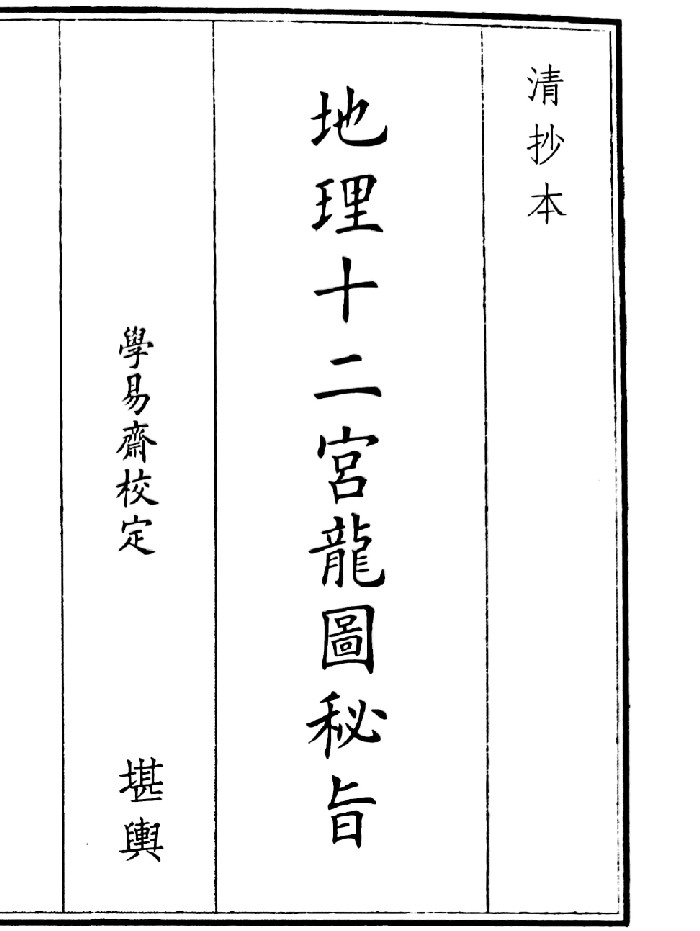 清抄本
地理十二宮龍圖秘旨
學易齋校定
堪輿